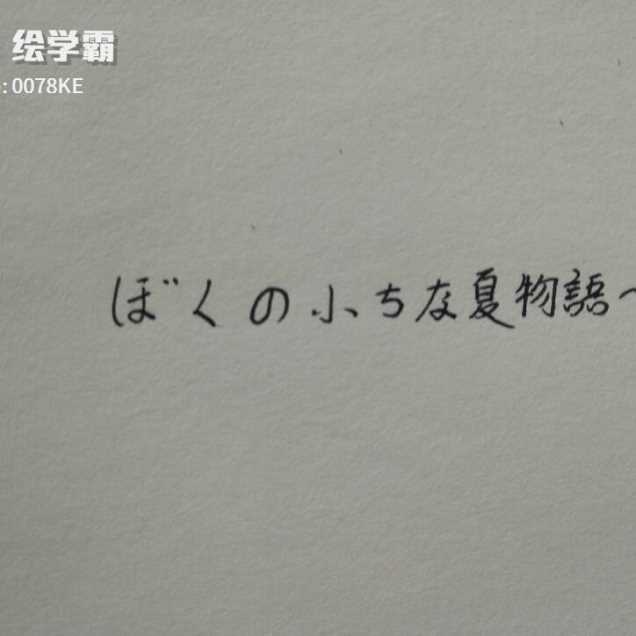 绘学霸
:0078KE
ぼくの小ちな夏物語~